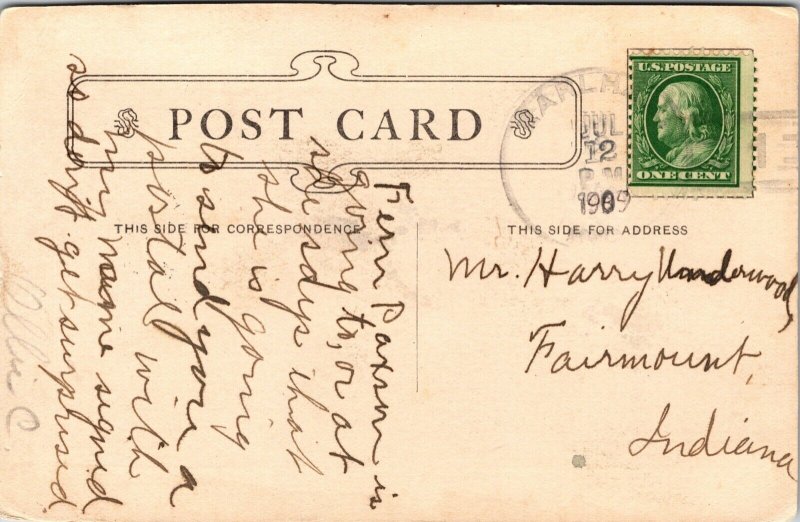 POST CARD
MARLH
JUL
12
P M
1909
U.S. POSTAGE
ONE CENT
THIS SIDE FOR CORRESPONDENCE
THIS SIDE FOR ADDRESS
Mr. Harry Underwood,
Fairmount,
Indiana
Fern Paxson is
going to, or at
she is going
to send you a
postal with
my name signed
so don't get surprised.
Ollie C.